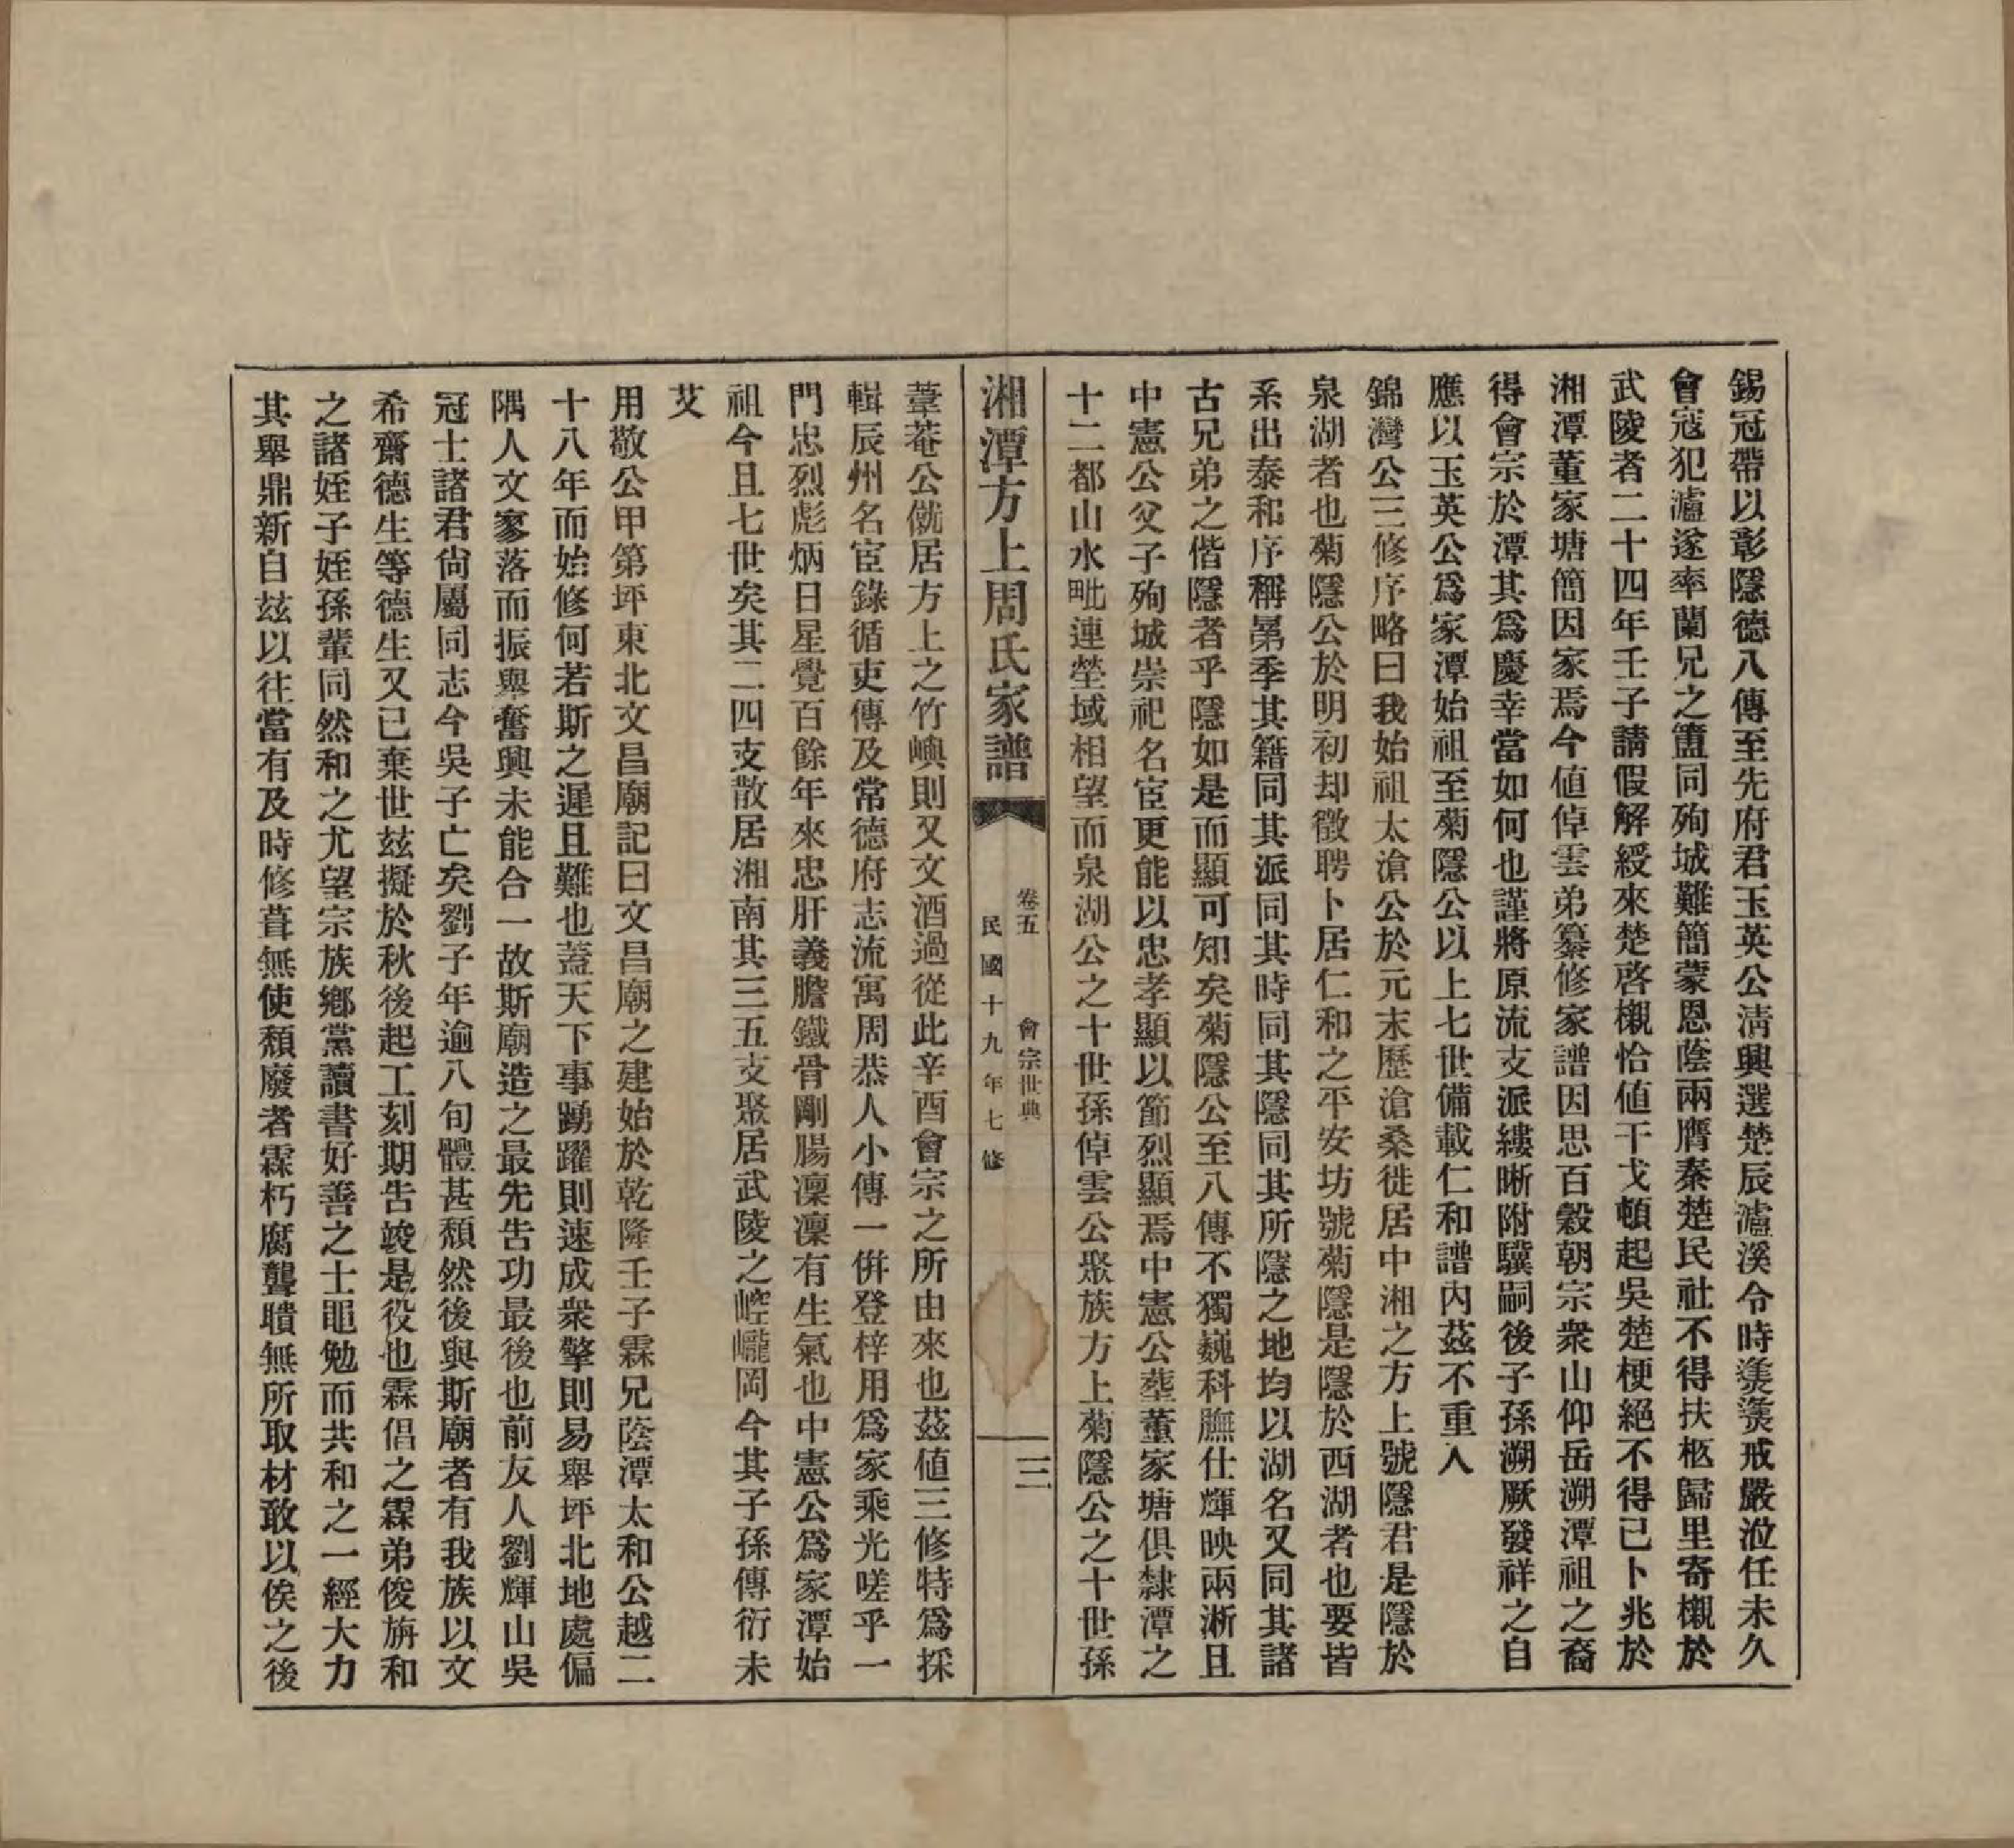 錫冠帶以彰隱德八傳至先府君玉英公淸興選楚辰瀘溪令時羮羮戒嚴涖任未久
會寇犯瀘遂率蘭兄之簠同殉城難簡蒙恩蔭兩膺秦楚民社不得扶柩歸里寄櫬於
武陵者二十四年壬子請假解綬來楚啓櫬恰値干戈頓起吳楚梗絕不得已卜兆於
湘潭董家塘簡因家焉今値倬雲弟纂修家譜因思百榖朝宗衆山仰岳溯潭祖之裔
得會宗於潭其爲慶幸當如何也謹將原流支派縷晰附驥嗣後子孫溯厥發祥之自
應以玉英公爲家潭始祖至菊隱公以上七世備載仁和譜内茲不重入
錦灣公三修序略曰我始祖太滄公於元末歷滄桑徙居中湘之方上號隱君是隱於
泉湖者也菊隱公於明初却徵聘卜居仁和之平安坊號菊隱是隱於西湖者也要皆
系出泰和序稱晜季其籍同其派同其時同其隱同其所隱之地均以湖名又同其諸
古兄弟之偕隱者乎隱如是而顯可知矣菊隱公至八傳不獨巍科膴仕輝映兩淅且
中憲公父子殉城崇祀名宦更能以忠孝顯以節烈顯焉中憲公塟董家塘俱隸潭之
十二都山水毗連塋域相望而泉湖公之十世孫倬雲公聚族方上菊隱公之十世孫
湘潭方上周氏家譜
卷五
會宗世典
民國十九年七修
三
葦菴公僦居方上之竹嶼則又文酒過從此辛酉會宗之所由來也茲値三修特爲採
輯辰州名宦錄循吏傳及常德府志流寓周恭人小傳一倂登梓用爲家乘光嗟乎一
門忠烈彪炳日星覺百餘年來忠肝義膽鐵骨剛腸凜凜有生氣也中憲公爲家潭始
祖今且七世矣其二四支散居湘南其三五支聚居武陵之崆巄岡今其子孫傳衍未
艾
用敬公甲第坪東北文昌廟記曰文昌廟之建始於乾隆壬子霖兄蔭潭太和公越二
十八年而始修何若斯之遲且難也蓋天下事踴躍則速成衆擎則易舉坪北地處偏
隅人文寥落而振興奮興未能合一故斯廟造之最先告功最後也前友人劉輝山吳
冠士諸君尙屬同志今吳子亡矣劉子年逾八旬體甚頹然後與斯廟者有我族以文
希齋德生等德生又已棄世玆擬於秋後起工刻期告竣是役也霖倡之霖弟俊旃和
之諸姪子姪孫輩同然和之尤望宗族鄉黨讀書好善之士黽勉而共和之一經大力
其舉鼎新自玆以往當有及時修葺無使頹廢者霖朽腐聾聵無所取材敢以俟之後